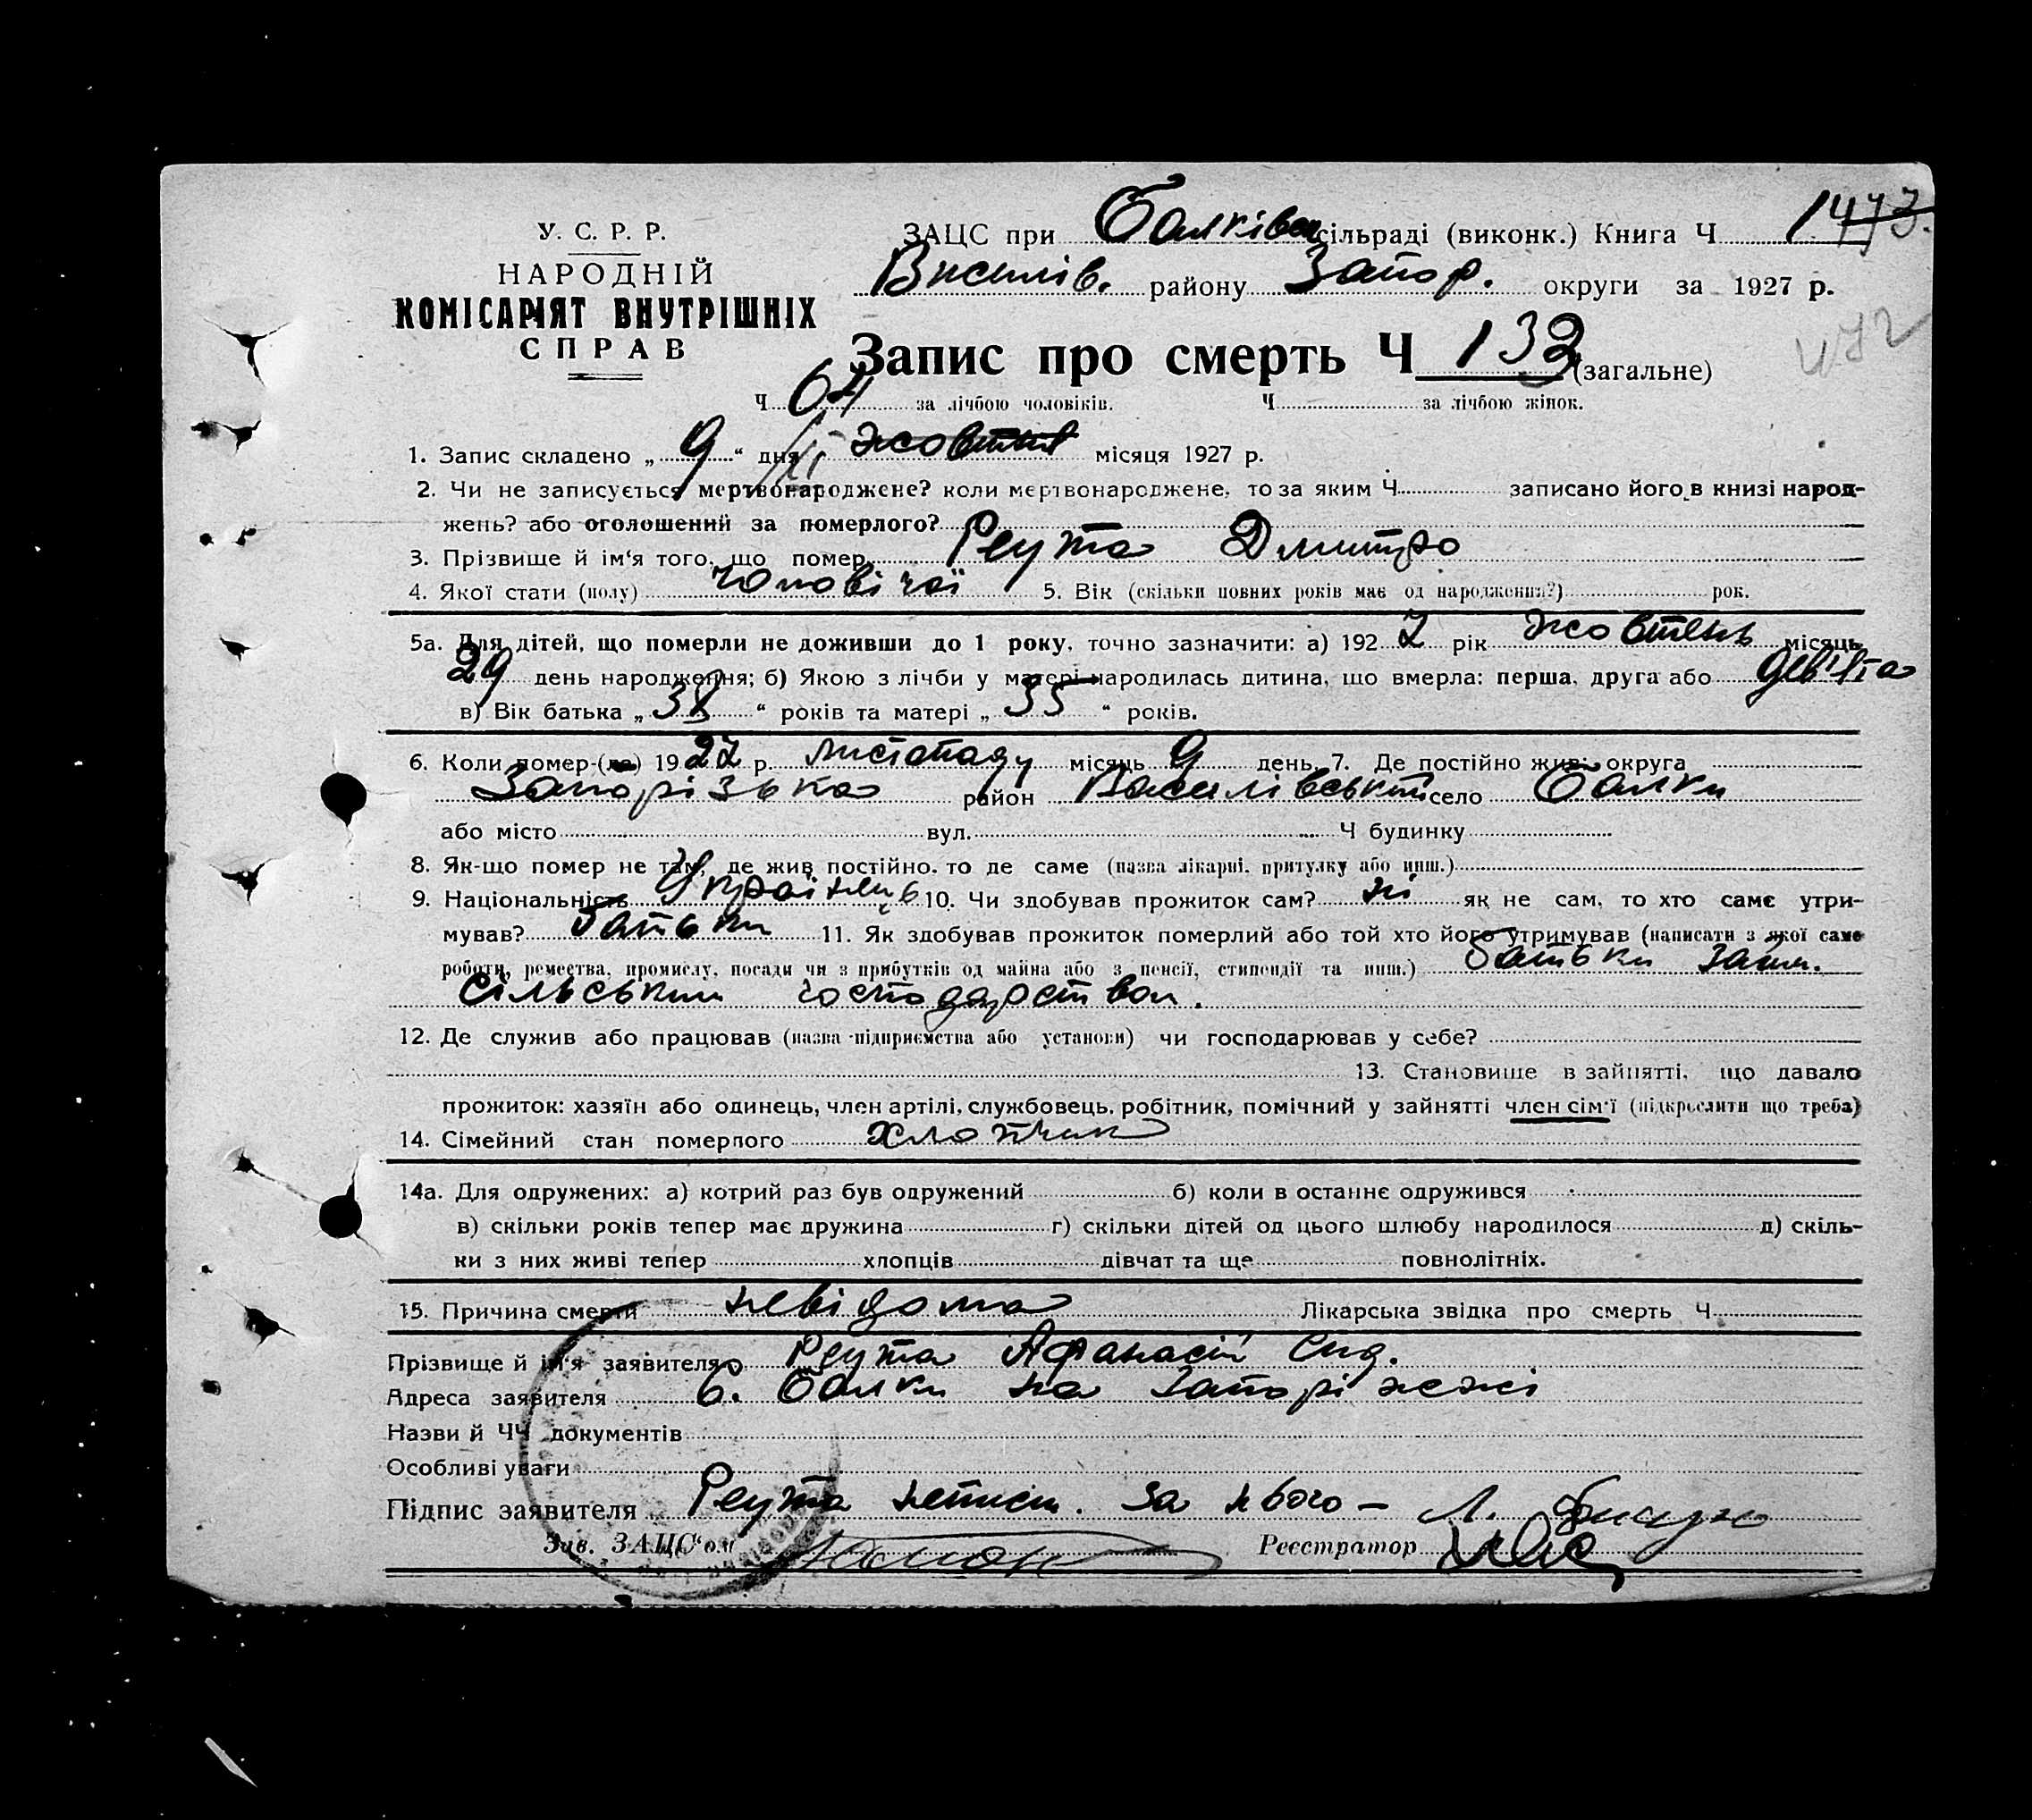 У. С. Р. Р.
НАРОДНІЙ
КОМІСАРІЯТ ВНУТРІШНІХ
СПРАВ
ЗАЦС при Балківск сільраді (виконк.) Книга Ч 1473.
Василів. району Запор. округи за 1927 р.
472
Запис про смерть Ч 132 (загальне)
Ч 64 за лічбою чоловіків. Ч за лічбою жінок.
1. Запис складено „ 9 “ дня XI жовтня місяця 1927 р.
2. Чи не записується мертвонароджене? коли мертвонароджене, то за яким Ч записано його в книзі народ-
жень? або оголошений за померлого?
3. Прізвище й ім‘я того, що помер Реута Дмитро
4. Якої стати (полу) чоловічої 5. Вік (скільки повних років має од народження?) рок.
5а. Для дітей, що померли не доживши до 1 року, точно зазначити: а) 192 7 рік жовтень місяць
29 день народження; б) Якою з лічби у матері народилась дитина, що вмерла: перша, друга або дев'ята
в) Вік батька „ 38 “ років та матері „ 35 “ років.
6. Коли помер-(ла) 19 27 р. листопаду місяць 9 день 7. Де постійно жив: округа
Запорізька район Василівський село Балки
або місто вул. Ч будинку
8. Як-що помер не там, де жив постійно, то де саме (назва лікарні, притулку або инш.)
9. Національність Українець 10. Чи здобував прожиток сам? ні як не сам, то хто саме утри-
мував? батьки 11. Як здобував прожиток померлий або той хто його утримував (написати з якої саме
роботи, ремества, промислу, посади чи з прибутків од майна або з пенсії, стипендії та инш.) батьки займ.
сільським господарством.
12. Де служив або працював (назва підприємства або установи) чи господарював у себе?
13. Становище в зайнятті, що давало
прожиток: хазяїн або одинець, член артілі, службовець, робітник, помічний у зайнятті член сім‘ї (підкреслити що треба)
14. Сімейний стан померлого хлопчик
14а. Для одружених: а) котрий раз був одружений б) коли в останнє одружився
в) скільки років тепер має дружина г) скільки дітей од цього шлюбу народилося д) скіль-
ки з них живі тепер хлопців дівчат та ще повнолітніх.
15. Причина смерти невідома Лікарська звідка про смерть Ч
Прізвище й ім‘я заявителя Реута Афанасій Сид.
Адреса заявителя с. Балки на Запоріжжі
Назви й ЧЧ документів
Особливі уваги
Підпис заявителя Реута неписм. за нього — Л.
Зав. ЗАЦС‘ом Реєстратор